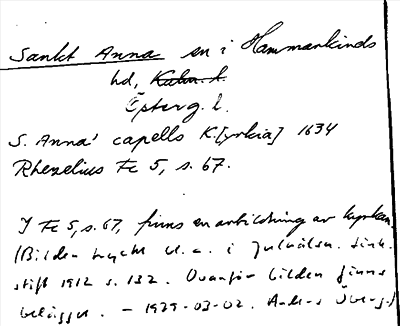 Sankt Anna sn i Hammarkinds
hd, Kalm. l.
Österg. l.
S. Annæ capells K[yrkia] 1634
Rhezelius Fc 5, s. 67.
I Fc 5, s. 67, finns en avbildning av kyrkan.
(Bilden tryckt bl.a. i Julhälsn. Link.
stift 1912 s. 132. Ovanför bilden finns
belägget. – 1979-03-02. Anders